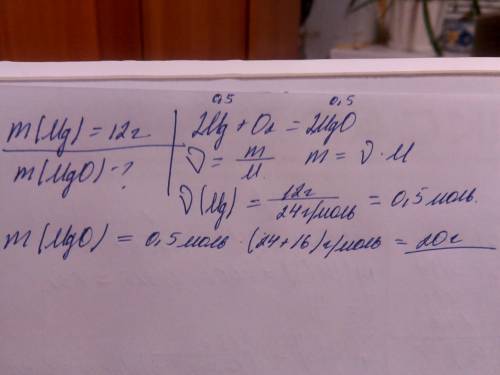 m(Mg) = 12г.
m(MgO) - ?
0,5 0,5
2Mg + O₂ = 2MgO
ν = m/M m = ν · M
ν(Mg) = 12г/24г/моль = 0,5 моль.
m(MgO) = 0,5 моль · (24+16)г/моль = 20г